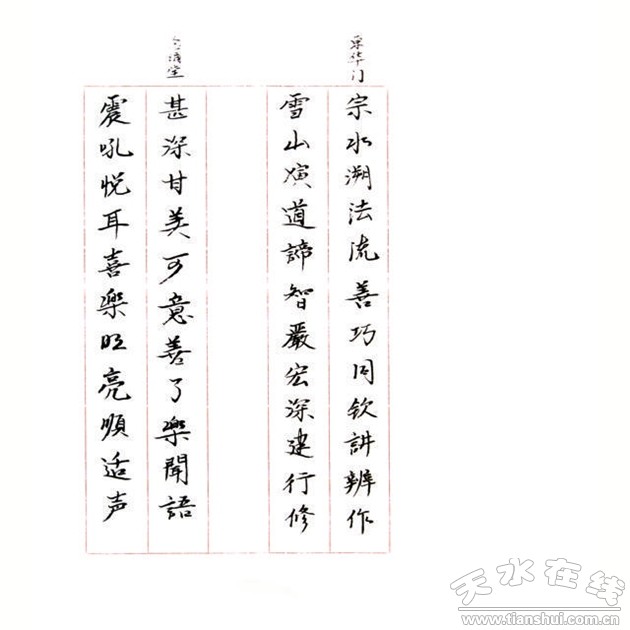 宗水溯法流善巧同钦讲辨作
雪山演道諦智嚴宏深建行修
甚深甘美可意善了樂聞語
震吼悦耳喜樂明亮順适声
天水在线
www.tianshui.com.cn